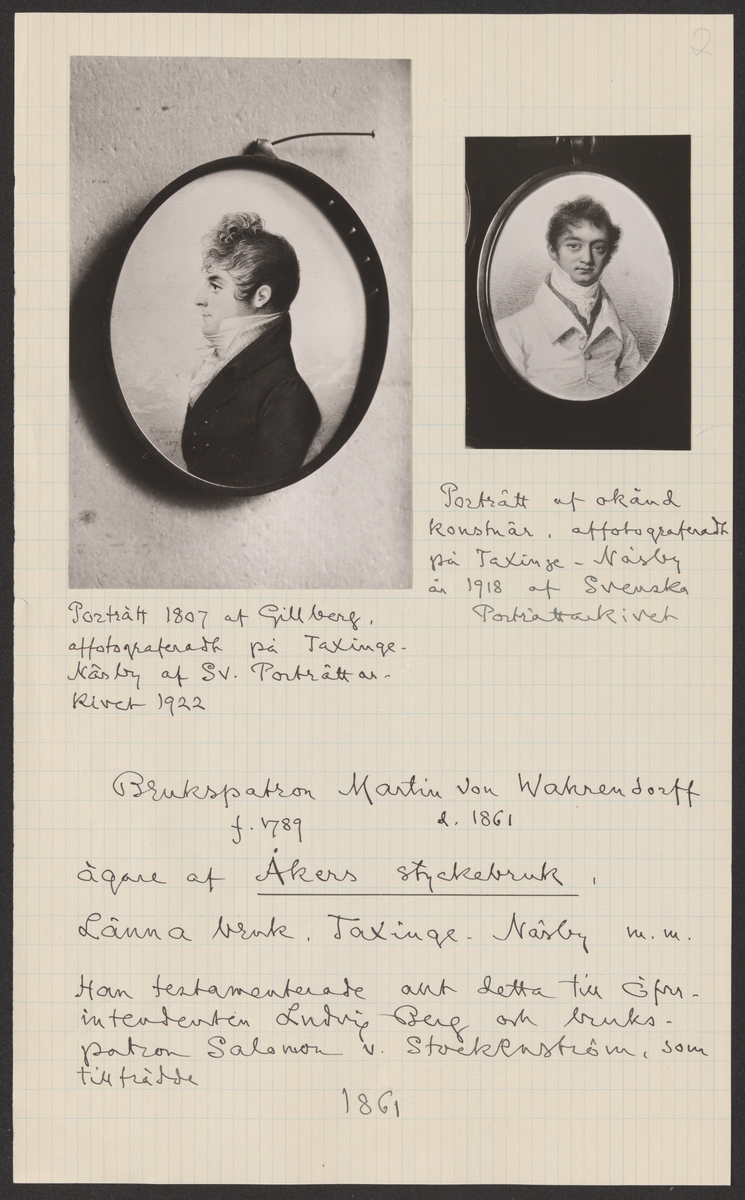 2
Porträtt af okänd
konstnär, affotograferadt
på Taxinge-Näsby
år 1918 af Svenska
Porträttarkivet
Porträtt 1807 af Gillberg,
affotograferadt på Taxinge-
Näsby af Sv. Porträttar-
kivet 1922
Brukspatron Martin von Wahrendorff
f. 1789 d. 1861
ägare af Åkers styckebruk,
Länna bruk, Taxinge-Näsby m.m.
Han testamenterade allt detta till Öfver-
intendenten Ludvig Berg och bruks-
patron Salomon v. Stockenström, som
tillträdde
1861